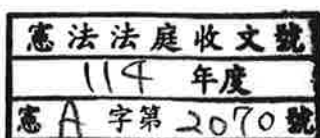 憲法法庭收文號
114 年度
憲 A 字第 2070 號